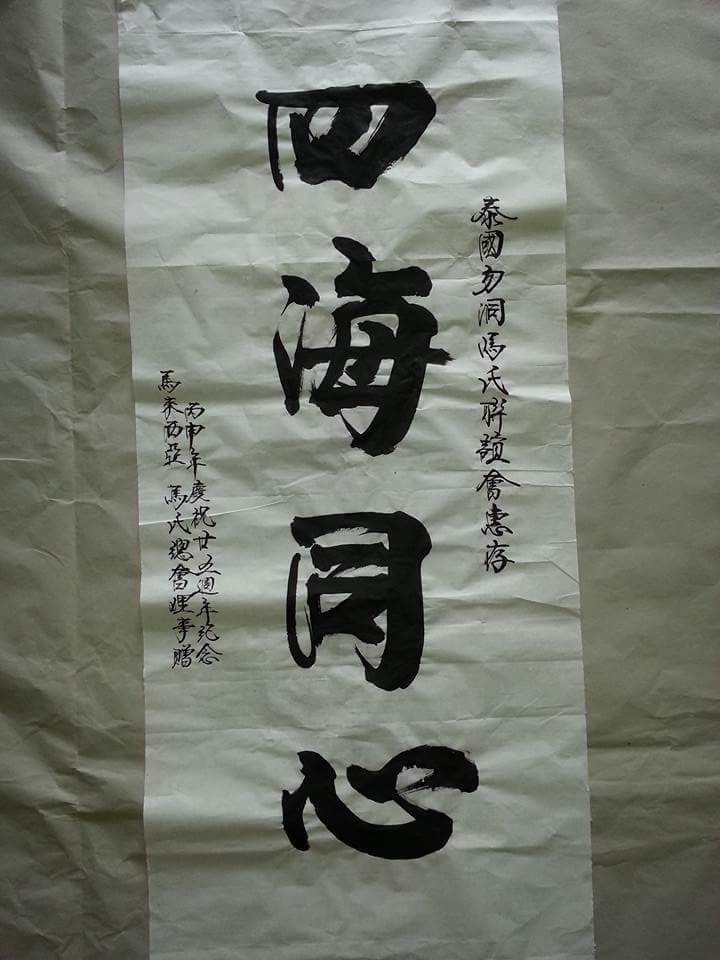 泰國勿洞馬氏聯誼會惠存
四海同心
丙申年慶祝廿五週年紀念
馬來西亞 馬氏總會理事贈